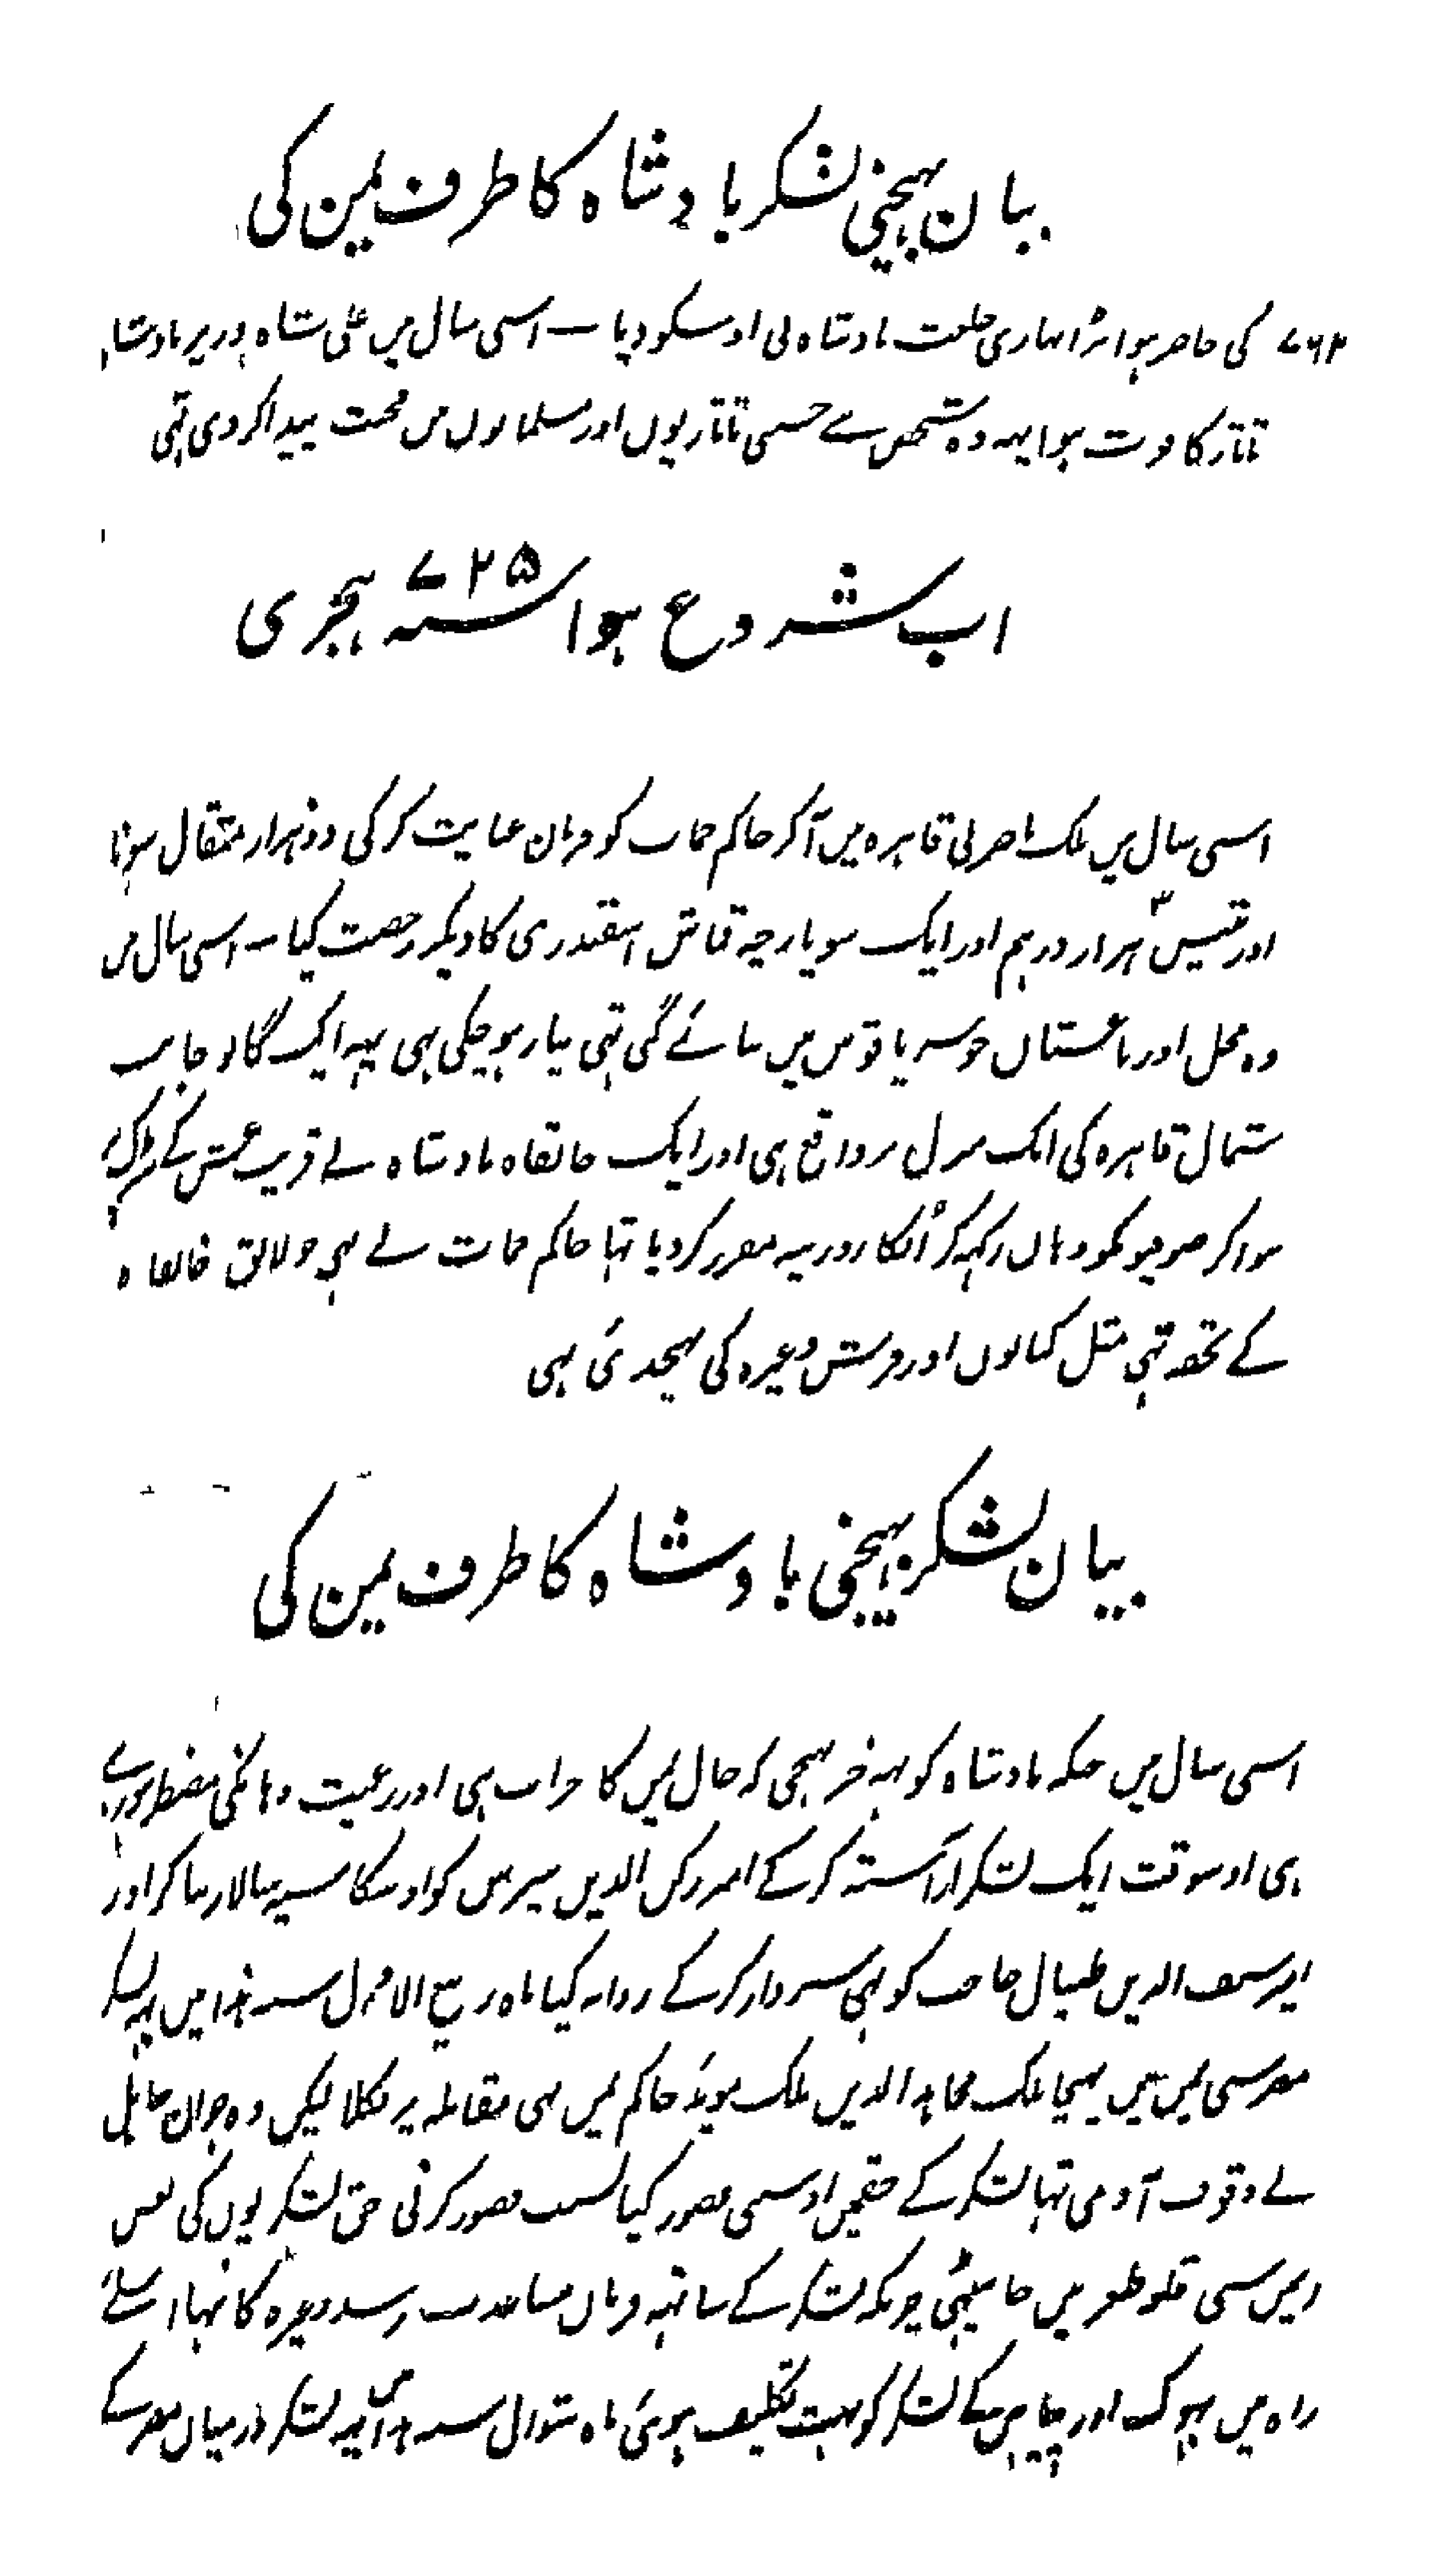 بیان بہیجنی لشکر بادشاہ کا طرف یمن کی
۷۶۳ کی حاضر ہوا بڑا بہاری خلعت بادشاہ نی اوسکو دیا — اسی سال میں علی شاہ وزیر بادشاہ
تاتار کا فوت ہوا یہہ وہ شخص ہے جسمی تاتاریوں اور مسلمانوں میں محبت پیدا کر دی تہی
اب شروع ہوا سنہ ۷۲۵ ہجری
اسی سال میں ملک ناصر نی قاہرہ میں آکر حاکم حمات کو فرمان عنایت کر کی دو ہزار مثقال سونا
اور تیس ہزار درہم اور ایک سو پارچہ قماش اسقندری کا دیکر رخصت کیا — اسی سال میں
وہ محل اور باغستاں جو سریاقوس میں بنائے گی تہی تیار ہو چکی ہی یہہ ایک گانو جانب
شمال قاہرہ کی ایک منزل پر واقع ہی اور ایک خانقاہ بادشاہ نے قریب عش کے
بنوا کر صوفیونکو وہاں رکہکر اُنکا روزینہ مقرر کر دیا تہا حاکم حمات نے بہی جو لائق خانقاہ
کے تحفہ تہی مثل کتابوں اور فرش وغیرہ کی بہیجدئی ہی
بیان لشکر بہیجنی بادشاہ کا طرف یمن کی
اسی سال میں جبکہ بادشاہ کو یہہ خبر پہنچی کہ حال یمن کا خراب ہی اور رعیت وہانکی مضطر ہو رہے
ہی اوسوقت ایک لشکر آراستہ کر کے امیر رکن الدین بیبرس کو اوسکا سپہ سالار بنا کر اور
امیر سیف الدین طینال حاجب کو بہی سردار کر کے روانہ کیا ماہ ربیع الاول سنہ ہذا میں یہہ لشکر
مصر سی یمن میں بہیجا ملک مجاہد الدین ملک موید حاکم یمن بہی مقابلہ پر نکلا لیکن وہ جوان جاہل
بے وقوف آدمی تہا لشکر کے حقمیں اوسی قصور کیا بسبب قصور کرنی حق لشکریوں کی بعض
ریمیں سی قلعہ میں جا بیٹہی چونکہ لشکر کے ساتہہ فرمان مساعدت رسد وغیرہ کا نہا اسلئے
راہ میں بہوک اور پیاس کے لشکر کو بہت تکلیف ہوئی ماہ شوال سنہ ہذا میں یہہ لشکر درمیان مصر کے